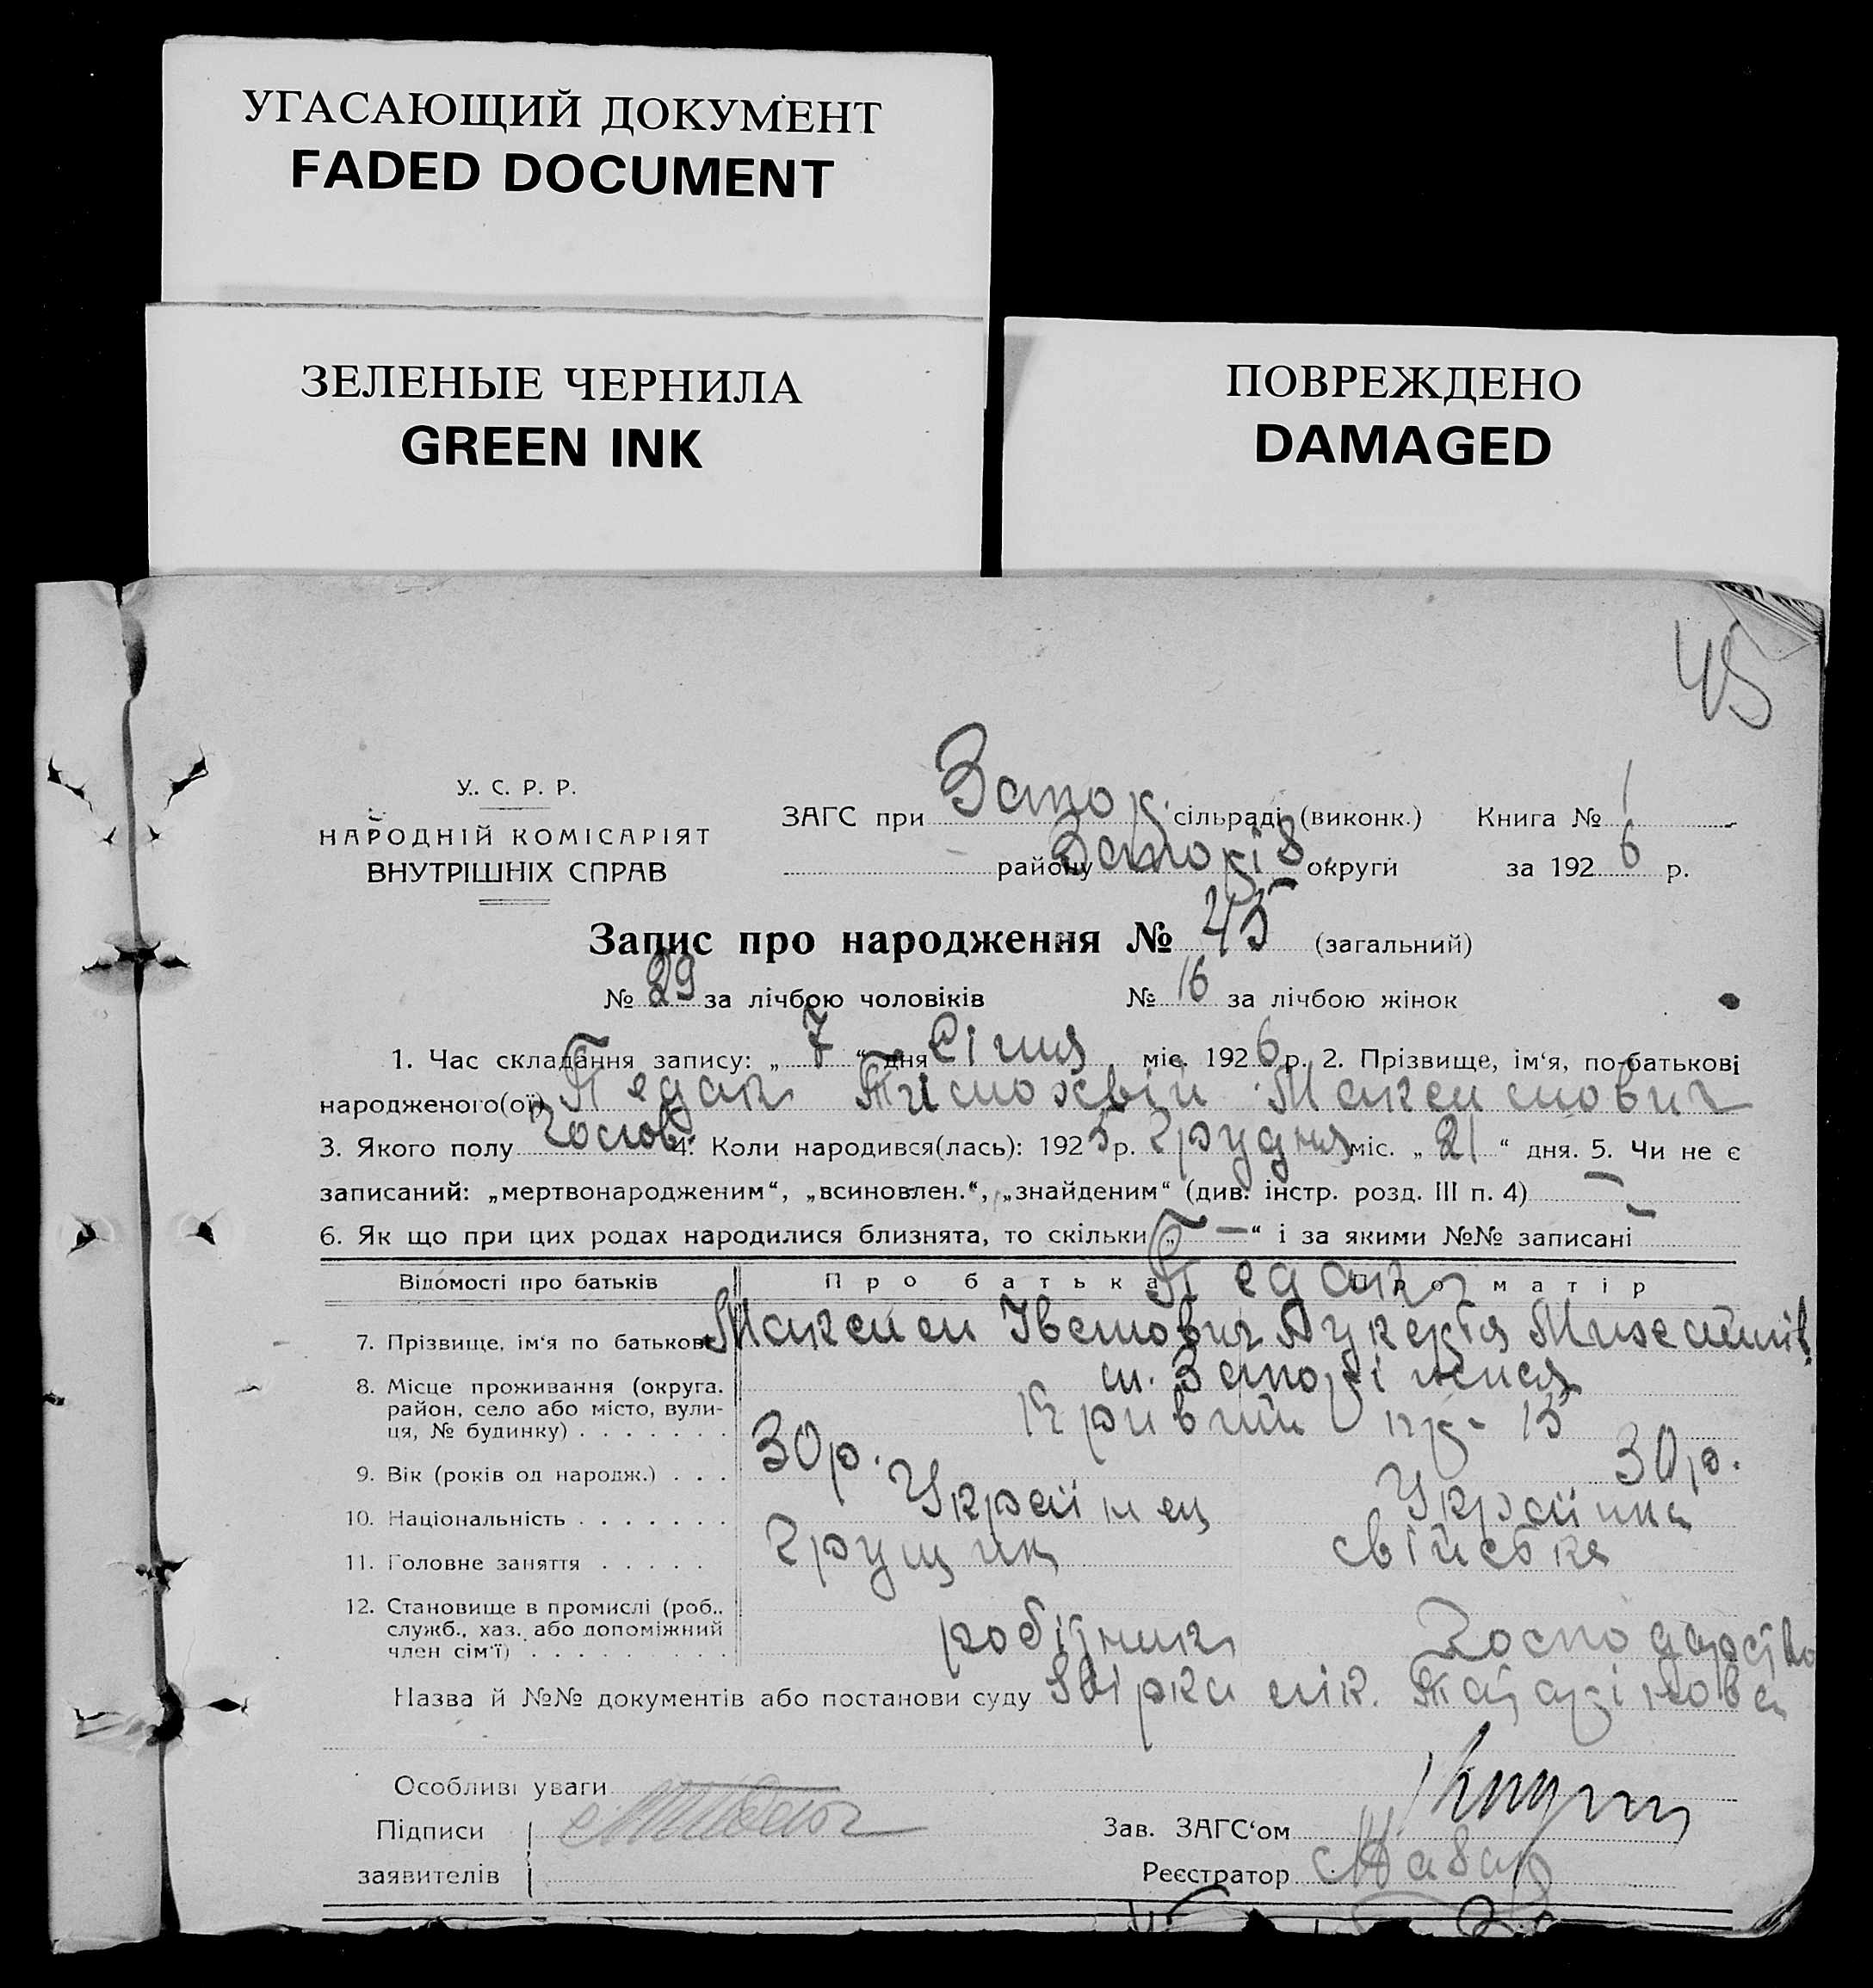 УГАСАЮЩИЙ ДОКУМЕНТ
FADED DOCUMENT
ЗЕЛЕНЫЕ ЧЕРНИЛА
GREEN INK
ПОВРЕЖДЕНО
DAMAGED
45
У. С. Р. Р.
НАРОДНІЙ КОМІСАРІЯТ
ВНУТРІШНІХ СПРАВ
ЗАГС при Запор. сільраді (виконк.) Книга № 1
району Запоріз округи за 1926 р.
Запис про народження № 45 (загальний)
№ 29 за лічбою чоловіків № 16 за лічбою жінок
1. Час складання запису: „ 7 “ дня Січня міс. 1926 р. 2. Прізвище, ім‘я, по-батькові
народженого(ої) Педак Тимохвій Максимович
3. Якого полу чолов. 4. Коли народився(лась): 1925 р. грудня міс. „ 21 “ дня. 5. Чи не є
записаний: „мертвонародженим“, „всиновлен.“, „знайденим“ (див. інстр. розд. III п. 4) —
6. Як що при цих родах народилися близнята, то скільки „ — “ і за якими №№ записані —
Відомості про батьків Про батька Про матір
Педак
7. Прізвище, ім‘я по батькові Максим Іванович Лукерія Михайлів.
8. Місце проживання (округа. м. Запоріжжя
район, село або місто, вули-
ця, № будинку) Кривий 15
9. Вік (років од народж.) 30 р. 30 р.
10. Національність Українец Українка
11. Головне заняття грущик свійська
12. Становище в промислі (роб.,
служб., хаз. або допоміжний
член сім‘ї) робітник господарство
Назва й №№ документів або постанови суду лік.
Особливі уваги
Підписи
заявителів
Зав. ЗАГС‘ом
Реєстратор